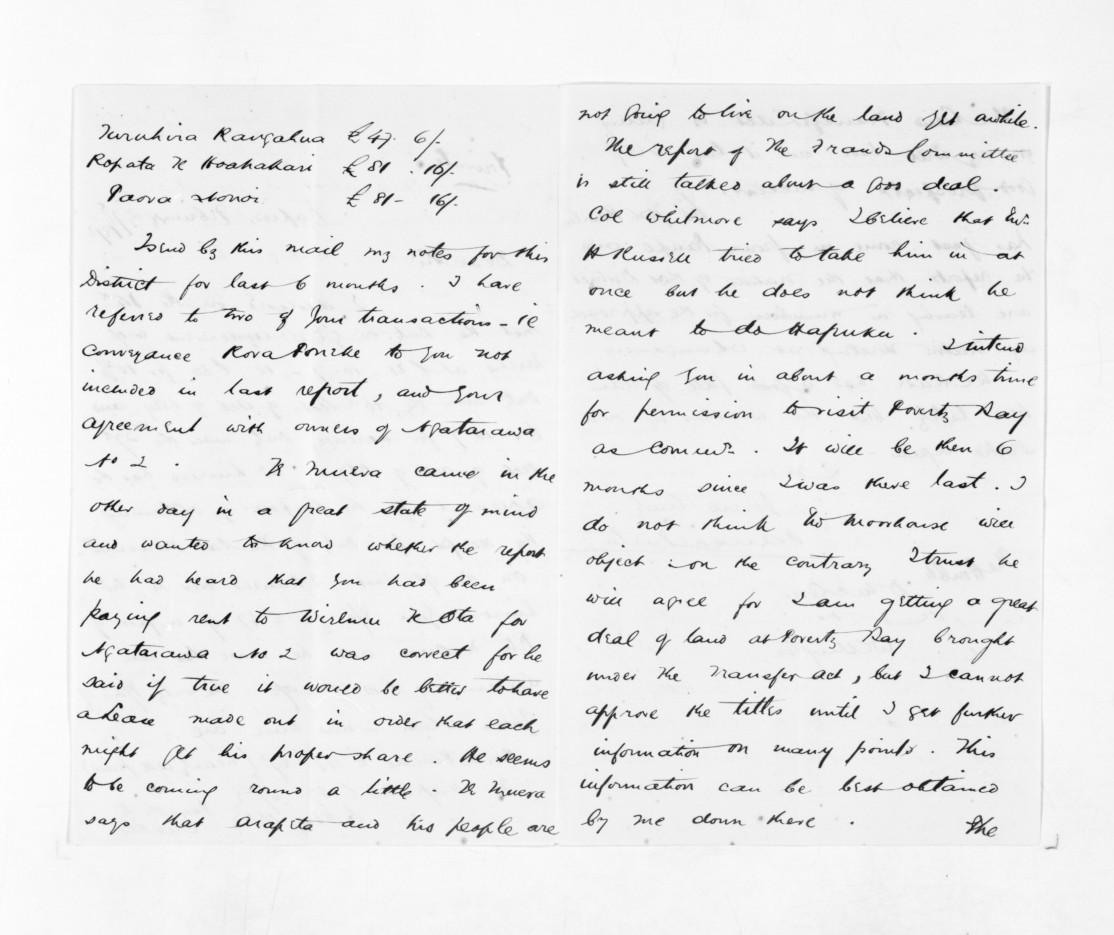 Turuhira Rangahua £47. 6/-
Ropata Te Hoakakari £81. 16/-
Paora Honoi £81 - 16/-
I send by this mail my notes for this
District for last 6 months. I have
referred to two of your transactions - ie
Conveyance to you not
included in last report, and your
agreement with owners of Ngatarawa
No 2. Te Muera came in the
other day in a great state of mind
and wanted to know whether the report
he had heard that you had been
paying rent to Wiremu Te Ota for
Ngatarawa No 2 was correct for he
said if true it would be better to have
a Lease made out in order that each
might get his proper share. He seems
to be coming round a little. Te Muera
says that Arapeta and his people are
not going to live on the land yet awhile.
The report of the Frauds Committee
is still talked about a good deal.
Col Whitmore says I believe that Mr.
H Russell tried to take him in at
once but he does not think he
meant to do Hapuku. I intend
asking you in about a months time
for permission to visit Poverty Bay
as Commr. It will be then 6
months since I was there last. I
do not think Mr Moorhouse will
object : on the contrary I trust he
will agree for I am getting a great
deal of land at Poverty Bay brought
under the Transfer Act, but I cannot
approve the titles until I get further
information on many points. This
information can be best obtained
by me down there.
The